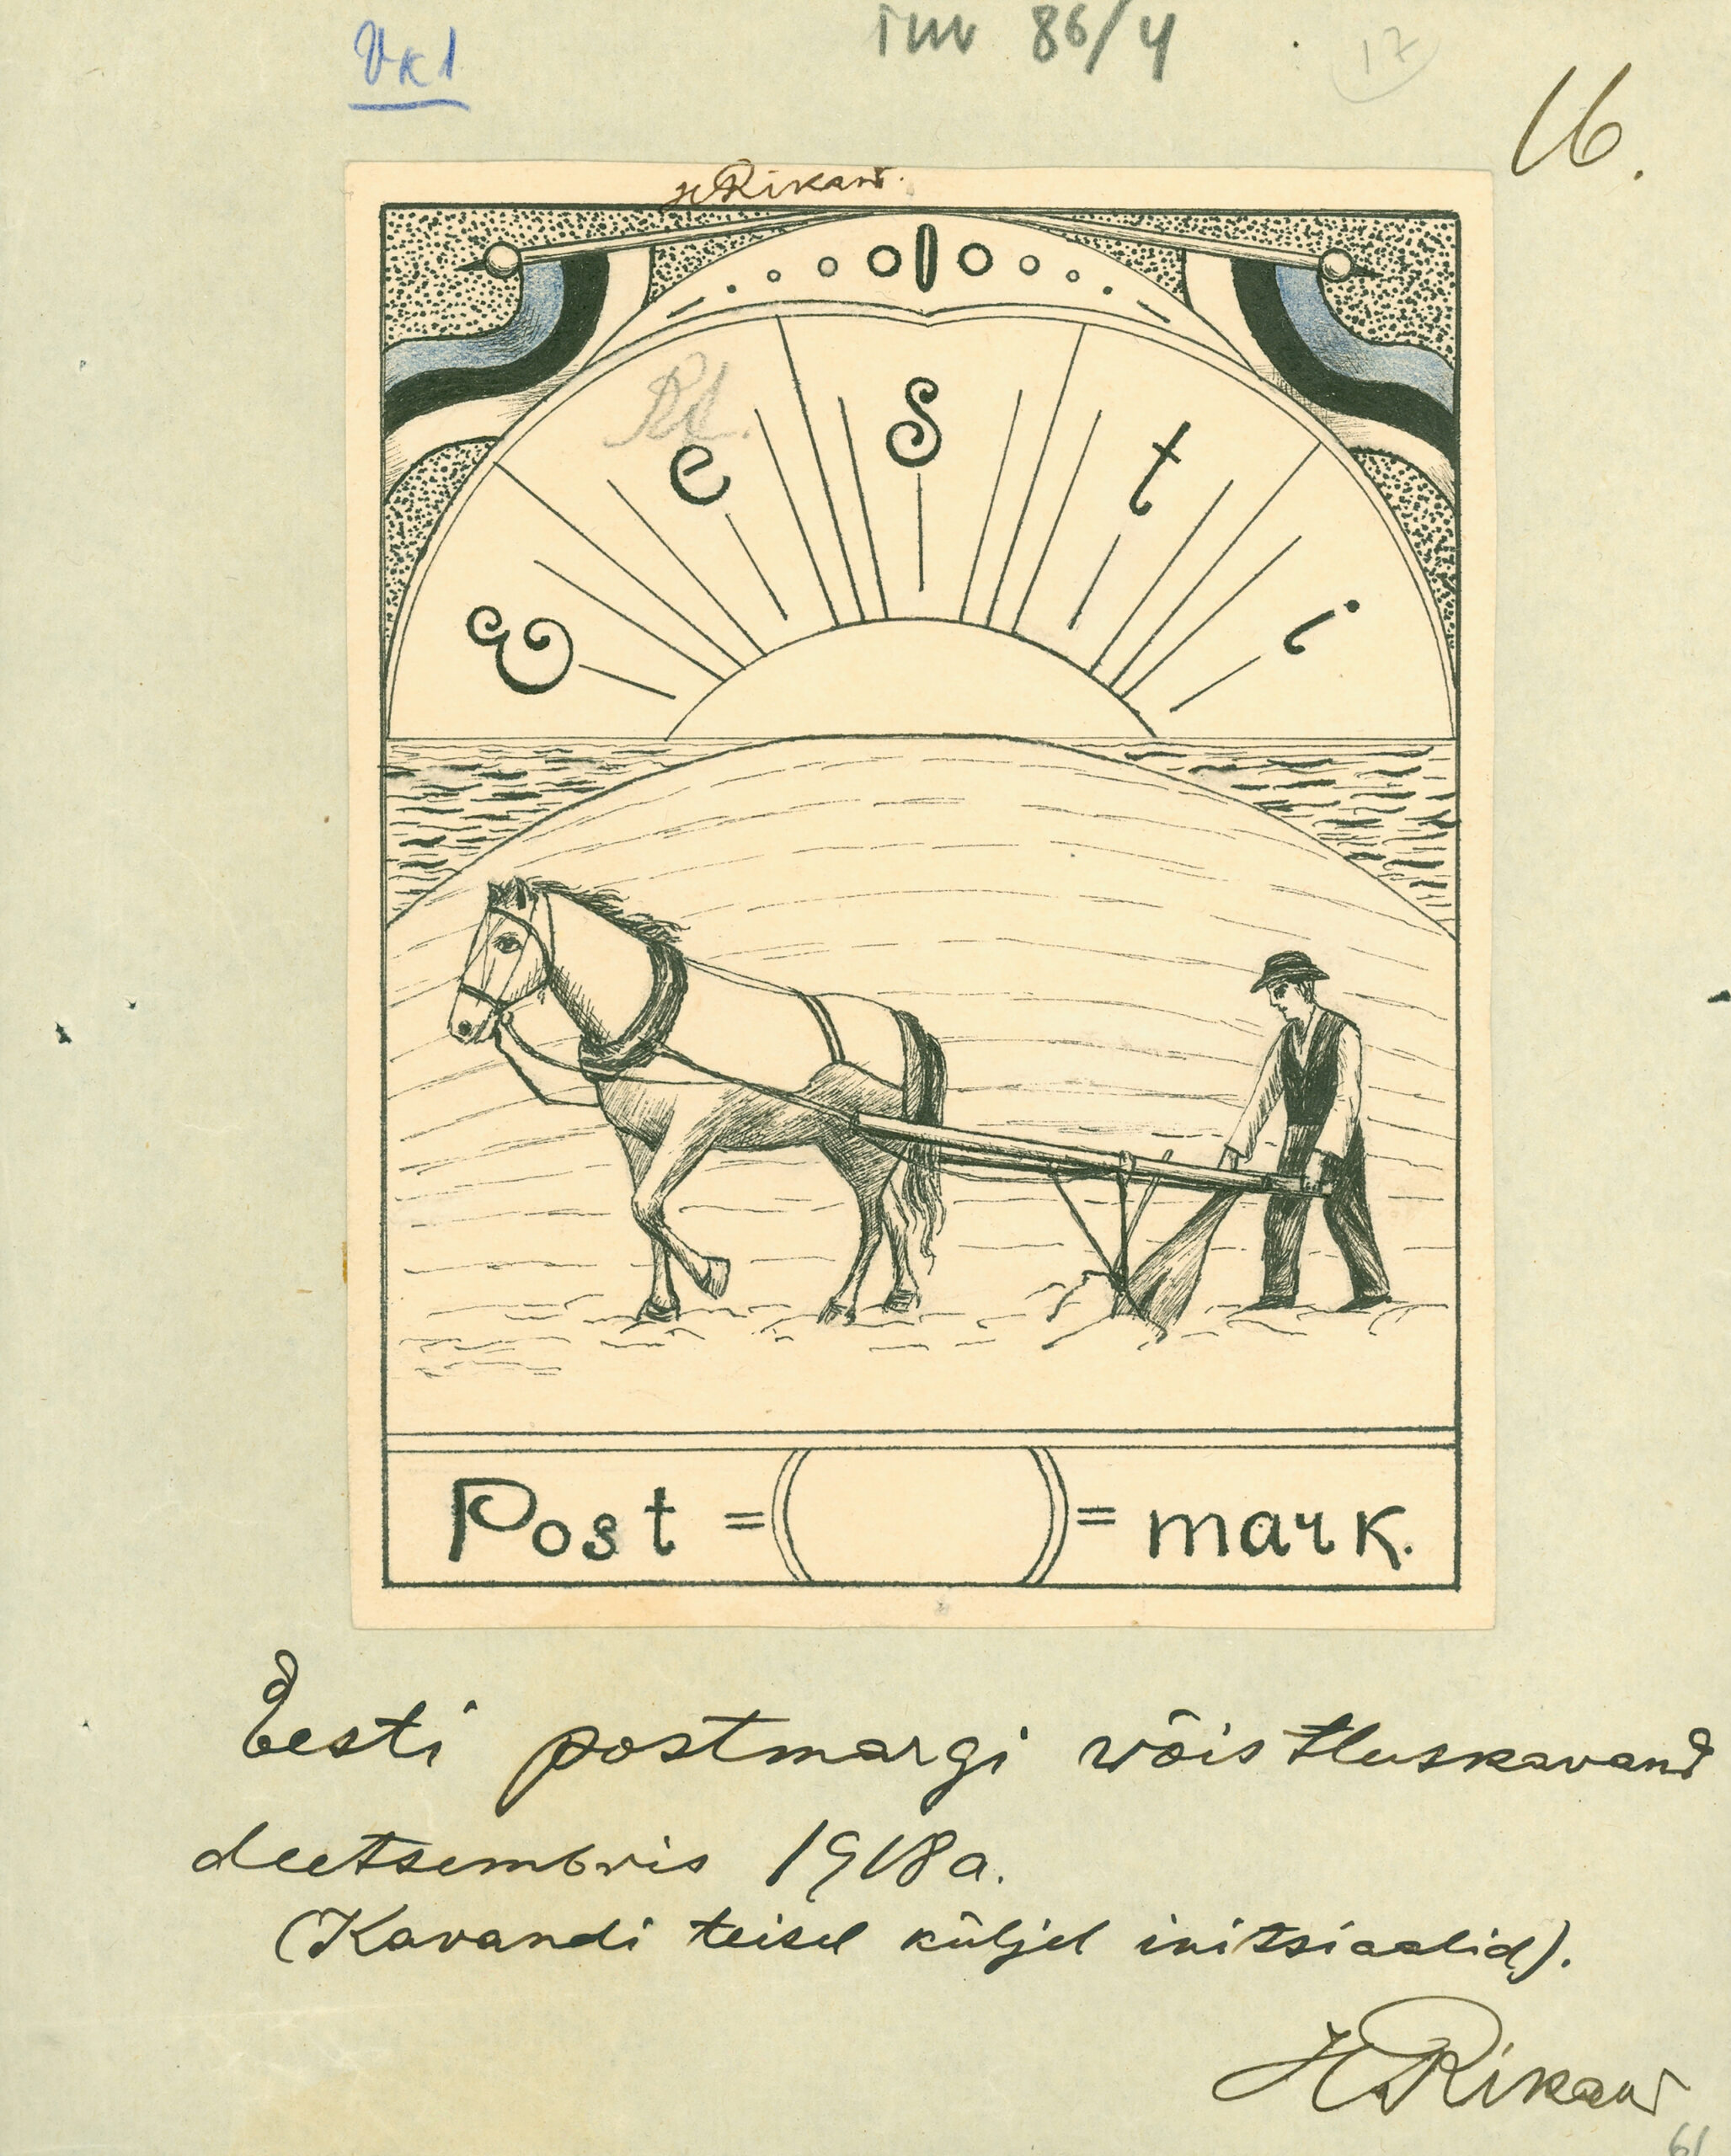 Vk1
inv 86/4
17
16.
HRikand.
Rd.
Eesti
Post = = mark.
Eesti postmargi võistluskavand
deetsembris 1918 a.
(Kavandi teisel küljel initsiaalid).
HRikand
61